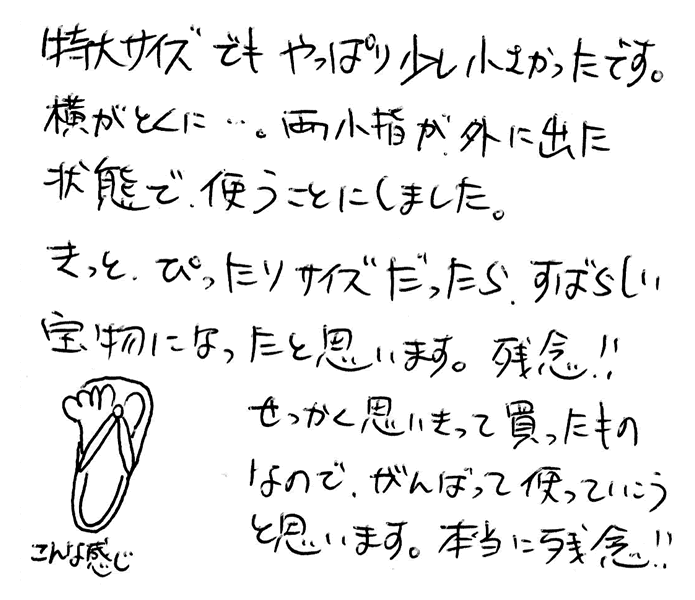 特大サイズでもやっぱり少し小さかったです。
横がとくに…。両小指が、外に出た
状態で、使うことにしました。
きっと、ぴったりサイズだったら、すばらしい
宝物になったと思います。残念!!
せっかく思いきって買ったもの
なので、がんばって使っていこう
と思います。本当に残念!!
こんな感じ